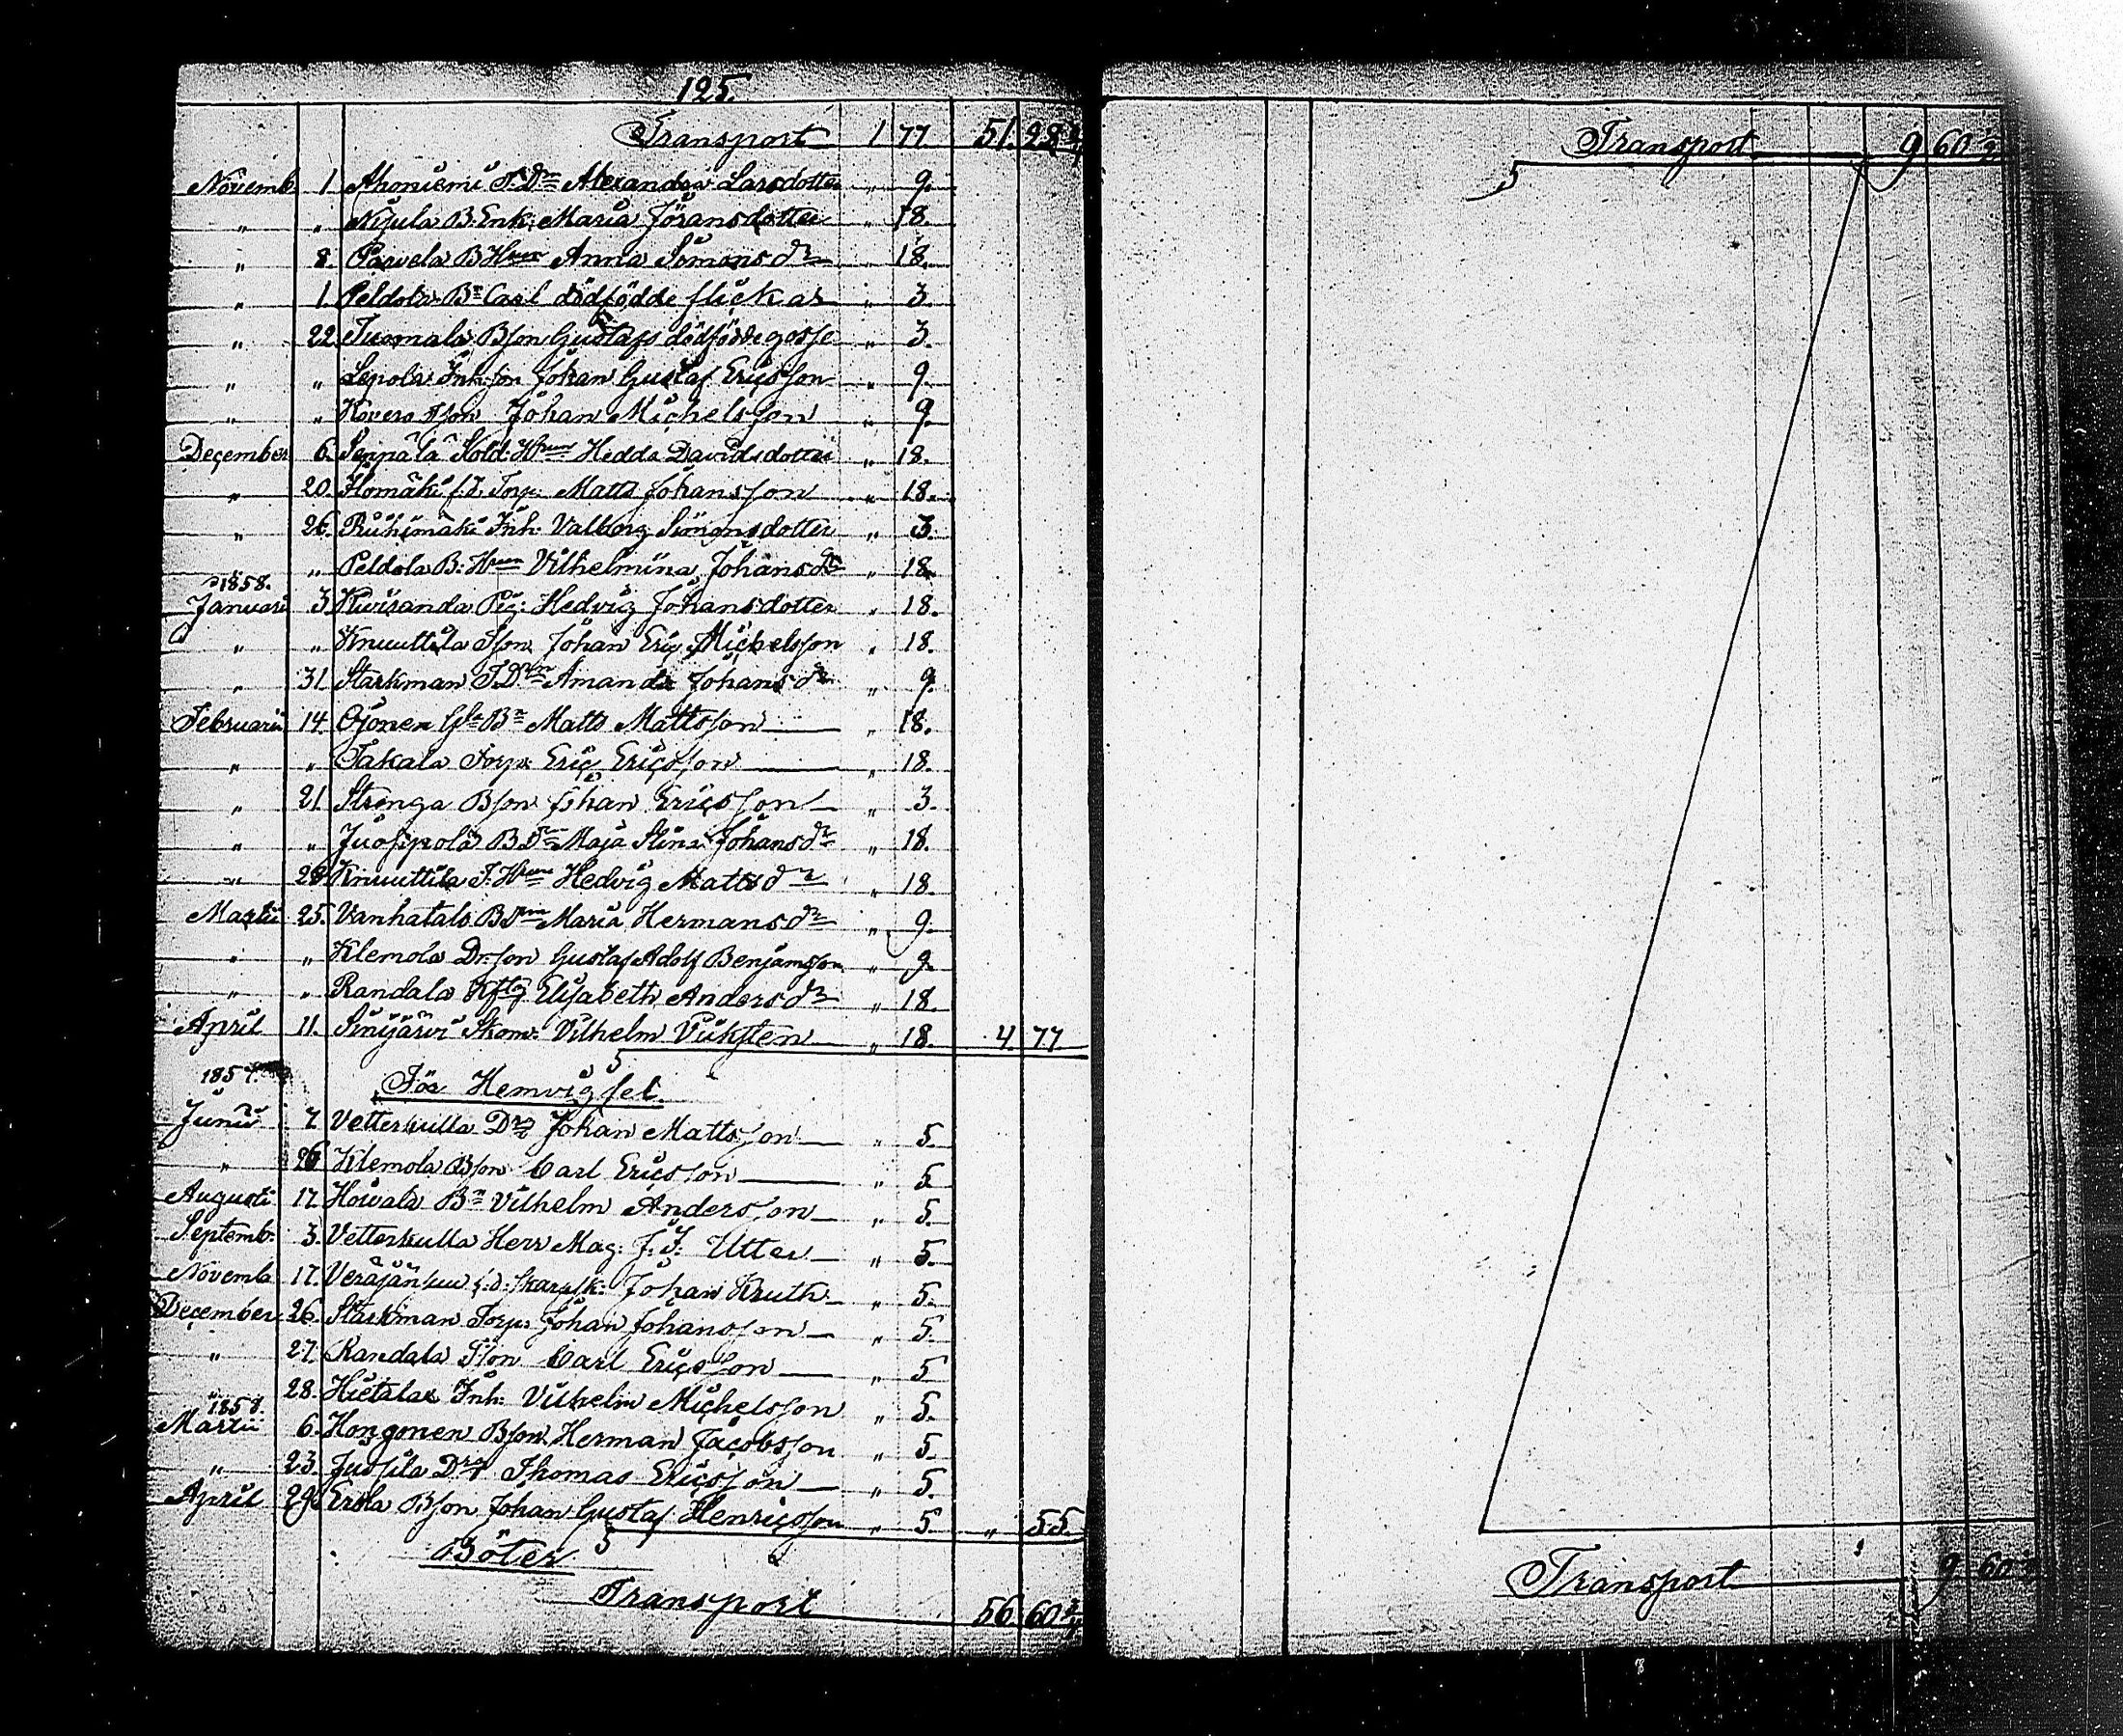 125.
Transport 1 77. 51. 28 3/4
Novemb. 1. Ahoniemi T. Drn Alexandra Larsdotter " 9.
" " Nijula B. Enk. Maria Göransdotter " 18.
" 8. Paavela B Hrun Anna Simonsdr " 18.
" 1. Peldola Bn Carl dödfödde flickas " 3.
" 22. Tuomala Bson Gustafs dödfödde gosse " 3.
" " Lepola Inh. son Johan Gustaf Ericsson " 9.
" " Kovero Tson Johan Michelsson " 9.
December 6. Seppälä Sold. Hrun Hedda Davidsdotter " 18.
" 20. Ilomäki f. d. Torp. Matts Johansson " 18.
" 26. Riihimäki Inh. Valborg Simonsdotter " 3.
" " Peldola B. Hrun Vilhelmina Johansdr " 18.
1858.
Januari 3. Kiviranda Pig. Hedvig Johansdotter " 18.
" " Knuuttila Sson Johan Eric Michelsson " 18.
" 31. Starkman T. Drn Amanda Johansdr " 9.
Februarii 14. Ojonen Gle Bn Matts Mattsson " 18.
" " Takala Torp. Eric Ericsson " 18.
" 21. Strenga Bson Johan Ericsson " 3.
" " Juoppola B Drn Maja Stina Johansdr " 18.
" 28. Knuuttila T. Hrun Hedvig Mattsdr " 18.
Martii 25. Vanhatalo B Drn Maria Hermansdr " 9.
" " Klemola Dr. son Gustaf Adolf Benjamsson " 9.
" " Randala Elisabeth Andersdr " 18.
April 11. Sinijärvi Skom. Vilhelm Vikstén " 18. 4. 77.
1857.
För Hemvigsel.
Junii 7. Vetterkulla Drg Johan Mattsson " 5.
" 26. Klemola Bson Carl Ericsson " 5.
Augusti 17. Howala Bn Vilhelm Andersson " 5.
Septemb. 3. Vetterkulla Herr Mag. J. I. Utter " 5.
Novemb. 17. Veräjänsuu f. d. skarpsk. Johan Kruth " 5.
December 26. Starkman Torp. Johan Johansson " 5.
" 27. Randala Tson Carl Ericsson " 5.
" 28. Hietalax Inh. Vilhelm Michelsson " 5.
1858.
Martii 6. Hongonen Bson Herman Jacobsson " 5.
" 23. Jussila Drg Thomas Ericsson " 5.
April 29. Erola Bson Johan Gustaf Henricsson " 5. " 55.
Böter
Transport 56. 60 3/4
Transport 9 60 1/2
Transport 9 60 1/2